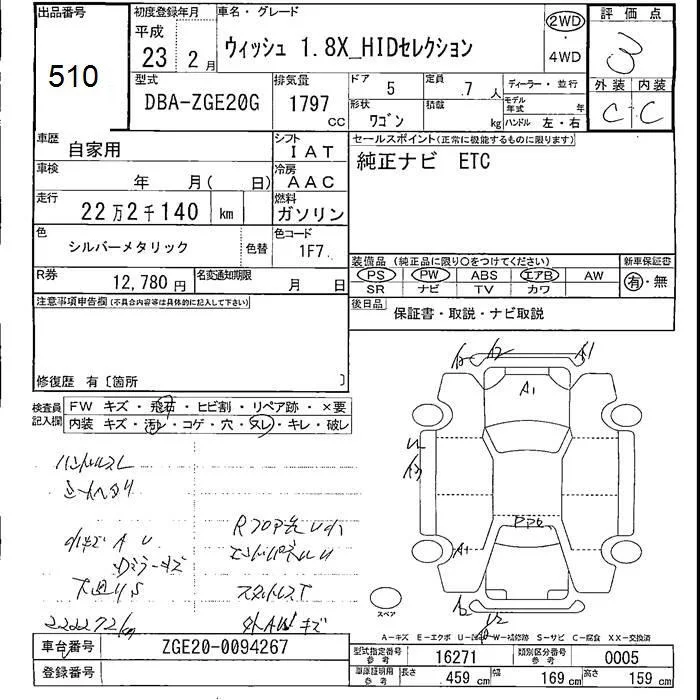 出品番号
510
初度登録年月
平成
23 2月
車名・グレード
ウィッシュ 1.8X_HIDセレクション
2WD
・
4WD
評価点
3
外装 内装
C C
型式
DBA-ZGE20G
排気量
1797
CC
ドア
5
定員
.7 人
形状
ワゴン
積載
kg
ディーラー・並行
モデル年式 年
ハンドル 左・右
車歴
自家用
シフト
IAT
車検
年 月( 日)
冷房
AAC
走行
22万2千140 km
燃料
ガソリン
色
シルバーメタリック
色替
色コード
1F7.
R券
12,780 円
名変通知期限
月 日
セールスポイント(正常に機能するものに限ります)
純正ナビ ETC
装備品 (純正品に限り○をつけてください)
PS PW ABS エアB AW
SR ナビ TV カワ
新車保証書
有・無
後日品
保証書・取説・ナビ取説
注意事項申告欄(不具合内容等は具体的に記入して下さい)
修復歴 有〔箇所 〕
検査員記入欄
FW キズ・飛石・ヒビ割・リペア跡・×要
内装 キズ・汚レ・コゲ・穴・スレ・キレ・破レ
ハンドルスレ
シートヘタリ
小キズ A U
Dミラーキズ
下廻りS
222272km
RフロアU
エンドパネルU
スタットレスT
外AWキズ
A2 A1
A1
U
A3
A1
スペア
A-キズ E-エクボ U-凹 W-補修跡 S-サビ C-腐食 XX-交換済
車台番号
ZGE20-0094267
登録番号
型式指定番号
参考
16271
類別区分番号
参考
0005
車庫証明用
参考
長さ
459 cm
幅
169 cm
高さ
159 cm